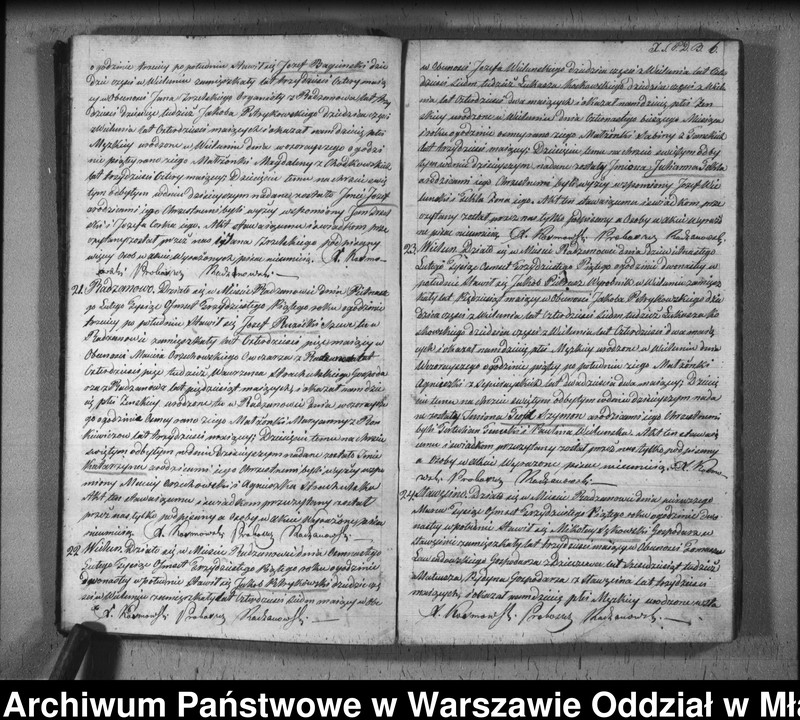 o godzinie trzeciy po południu Stawił się Józef Bagiński dzie
dzic części w Wieluniu zamieszkały lat trzydzieści Cztery maią
cy w Obecności Jana Organisty z Radzanowa lat
dzieści tudzież Jakóba Pełtykowskiego dziedzica części
z Wielunia lat Czterdzieści maiących i okazał nam dziecię płci
Męzkiey urodzone w Wieluniu dnia wczorayszego o godzi
nie piątey rano z iego Małżonki Magdaleny z
lat trzydzieści Cztery maiącey. Dziecięciu temu na chrzcie świę
tym odbytym w dniu dzisieyszym nadane zostało Imie Józef
a rodzicami iego Chrzestnemi byli wyżey wspomniony Jan
ski i Józefa Akt ten stawaiącemu i świadkom prze
czytany został przez nas i Jana podpisany
więcey Osób w akcie wyrażonych pisać nieumieią. X. Karmo
wski Proboszcz Radzanowski
21. Radzanowo. Działo się w Mieście Radzanowie dnia
go Lutego Tysiąc Ośmset Trzydziestego Piątego roku o godzinie
trzeciey po południu Stawił się Józef Ruziński Szewc tu w
Radzanowie zamieszkały lat Czterdzieści pięć maiący w
Obecności Macieia Orzechowskiego Owczarza z Radzanowa lat
Czterdzieści pięć tudzież Wawrzeńca Strachulskiego Gospoda
rza z Radzanowa lat pięćdziesiąt maiących i okazał nam dzie
cię płci Żeńskiey urodzone tu w Radzanowie dnia wczorayszego
o godzinie Osmey rano z iego Małżonki Maryanny z
kiewiczow lat trzydzieści maiącey. Dziecięciu temu na chrzcie
świętym odbytym w dniu dzisieyszym nadane zostało Imie
Katarzyna a rodzicami iego Chrzestnemi byli wyżey wspo
mniony Maciey Orzechowski i Agnieszka Strachulska
Akt ten stawaiącemu i świadkom przeczytany został
przez nas tylko podpisany a Osoby w akcie wyrażone pisać
nieumieią. X. Karmowski Proboszcz Radzanowski
22. Wieluń. Działo się w Mieście Radzanowie dnia Osmnastego
Lutego Tysiąc Ośmset Trzydziestego Piątego roku o godzinie
w południe Stawił się Jakób Pełtykowski dziedzic czę
ści w Wieluniu zamieszkały lat Czterdzieści Siedm maiący w Obe
X. Karmowski Proboszcz Radzanowski
6.
w Obecności Józefa Wielunskiego dziedzica części z Wielunia lat Czter
dzieści Siedm tudzież Łukasza Kochowskiego dziedzica części z Wielu
nia lat Czterdzieści dwa maiących i okazał nam dziecię płci Żeń
skiey urodzone w Wieluniu dnia bieżącego Miesiąca
i roku o godzinie osmey rano z iego Małżonki Sabiny z
lat trzydzieści maiącey. Dziecięciu temu na chrzcie świętym odby
tym w dniu dzisieyszym nadane zostały Imiona Julianna Tekla
a rodzicami iego Chrzestnemi byli wyżey wspomniony Józef Wie
luński i Tekla Żona iego. Akt ten stawaiącemu i świadkom prze
czytany został przez nas tylko podpisany a Osoby w akcie wyrażo
ne pisać nieumieią. X. Karmowski Proboszcz Radzanowski
23. Wieluń. Działo się w Mieście Radzanowie dnia dziewiętnastego
Lutego Tysiąc Ośmset Trzydziestego Piątego o godzinie dwunastey w
południe Stawił się Jakób Wyrobnik w Wieluniu zamiesz
kały lat Pięćdziesiąt maiący w Obecności Jakóba Pełtykowskiego dzie
dzica części z Wielunia lat Czterdzieści Siedm tudzież Łukasza Ko
chowskiego dziedzica części z Wielunia lat Czterdzieści dwa maią
cych i okazał nam dziecię płci Męzkiey urodzone w Wieluniu dnia
Wczorayszego o godzinie piątey po południu z iego Małżonki
Agnieszki z lat dwadzieścia dwa maiącey. Dzieci
ęciu temu na chrzcie świętym odbytym w dniu dzisieyszym nada
ne zostały Imiona Teofil Szymon a rodzicami iego Chrzestnemi
byli i Paulina Wielunska. Akt ten stawaią
cemu i świadkom przeczytany został przez nas tylko podpisany
a Osoby w akcie Wyrażone pisać nieumieią. X. Karmo
wski Proboszcz Radzanowski
24. Sławęcino. Działo się w Mieście Radzanowie dnia pierwszego
Marca Tysiąc Ośmset Trzydziestego Piątego roku o godzinie dwu
nastey w południe Stawił się Mikołay Gospodarz w
Sławęcinie zamieszkały lat trzydzieści maiący w Obecności
Lewandowskiego Gospodarza z lat tudzież
Mateusza Gospodarza z Sławęcina lat trzydzieści
maiących i okazał nam dziecię płci Męzkiey urodzone
X. Karmowski Proboszcz Radzanowski
Archiwum Państwowe w Warszawie Oddział w Mła